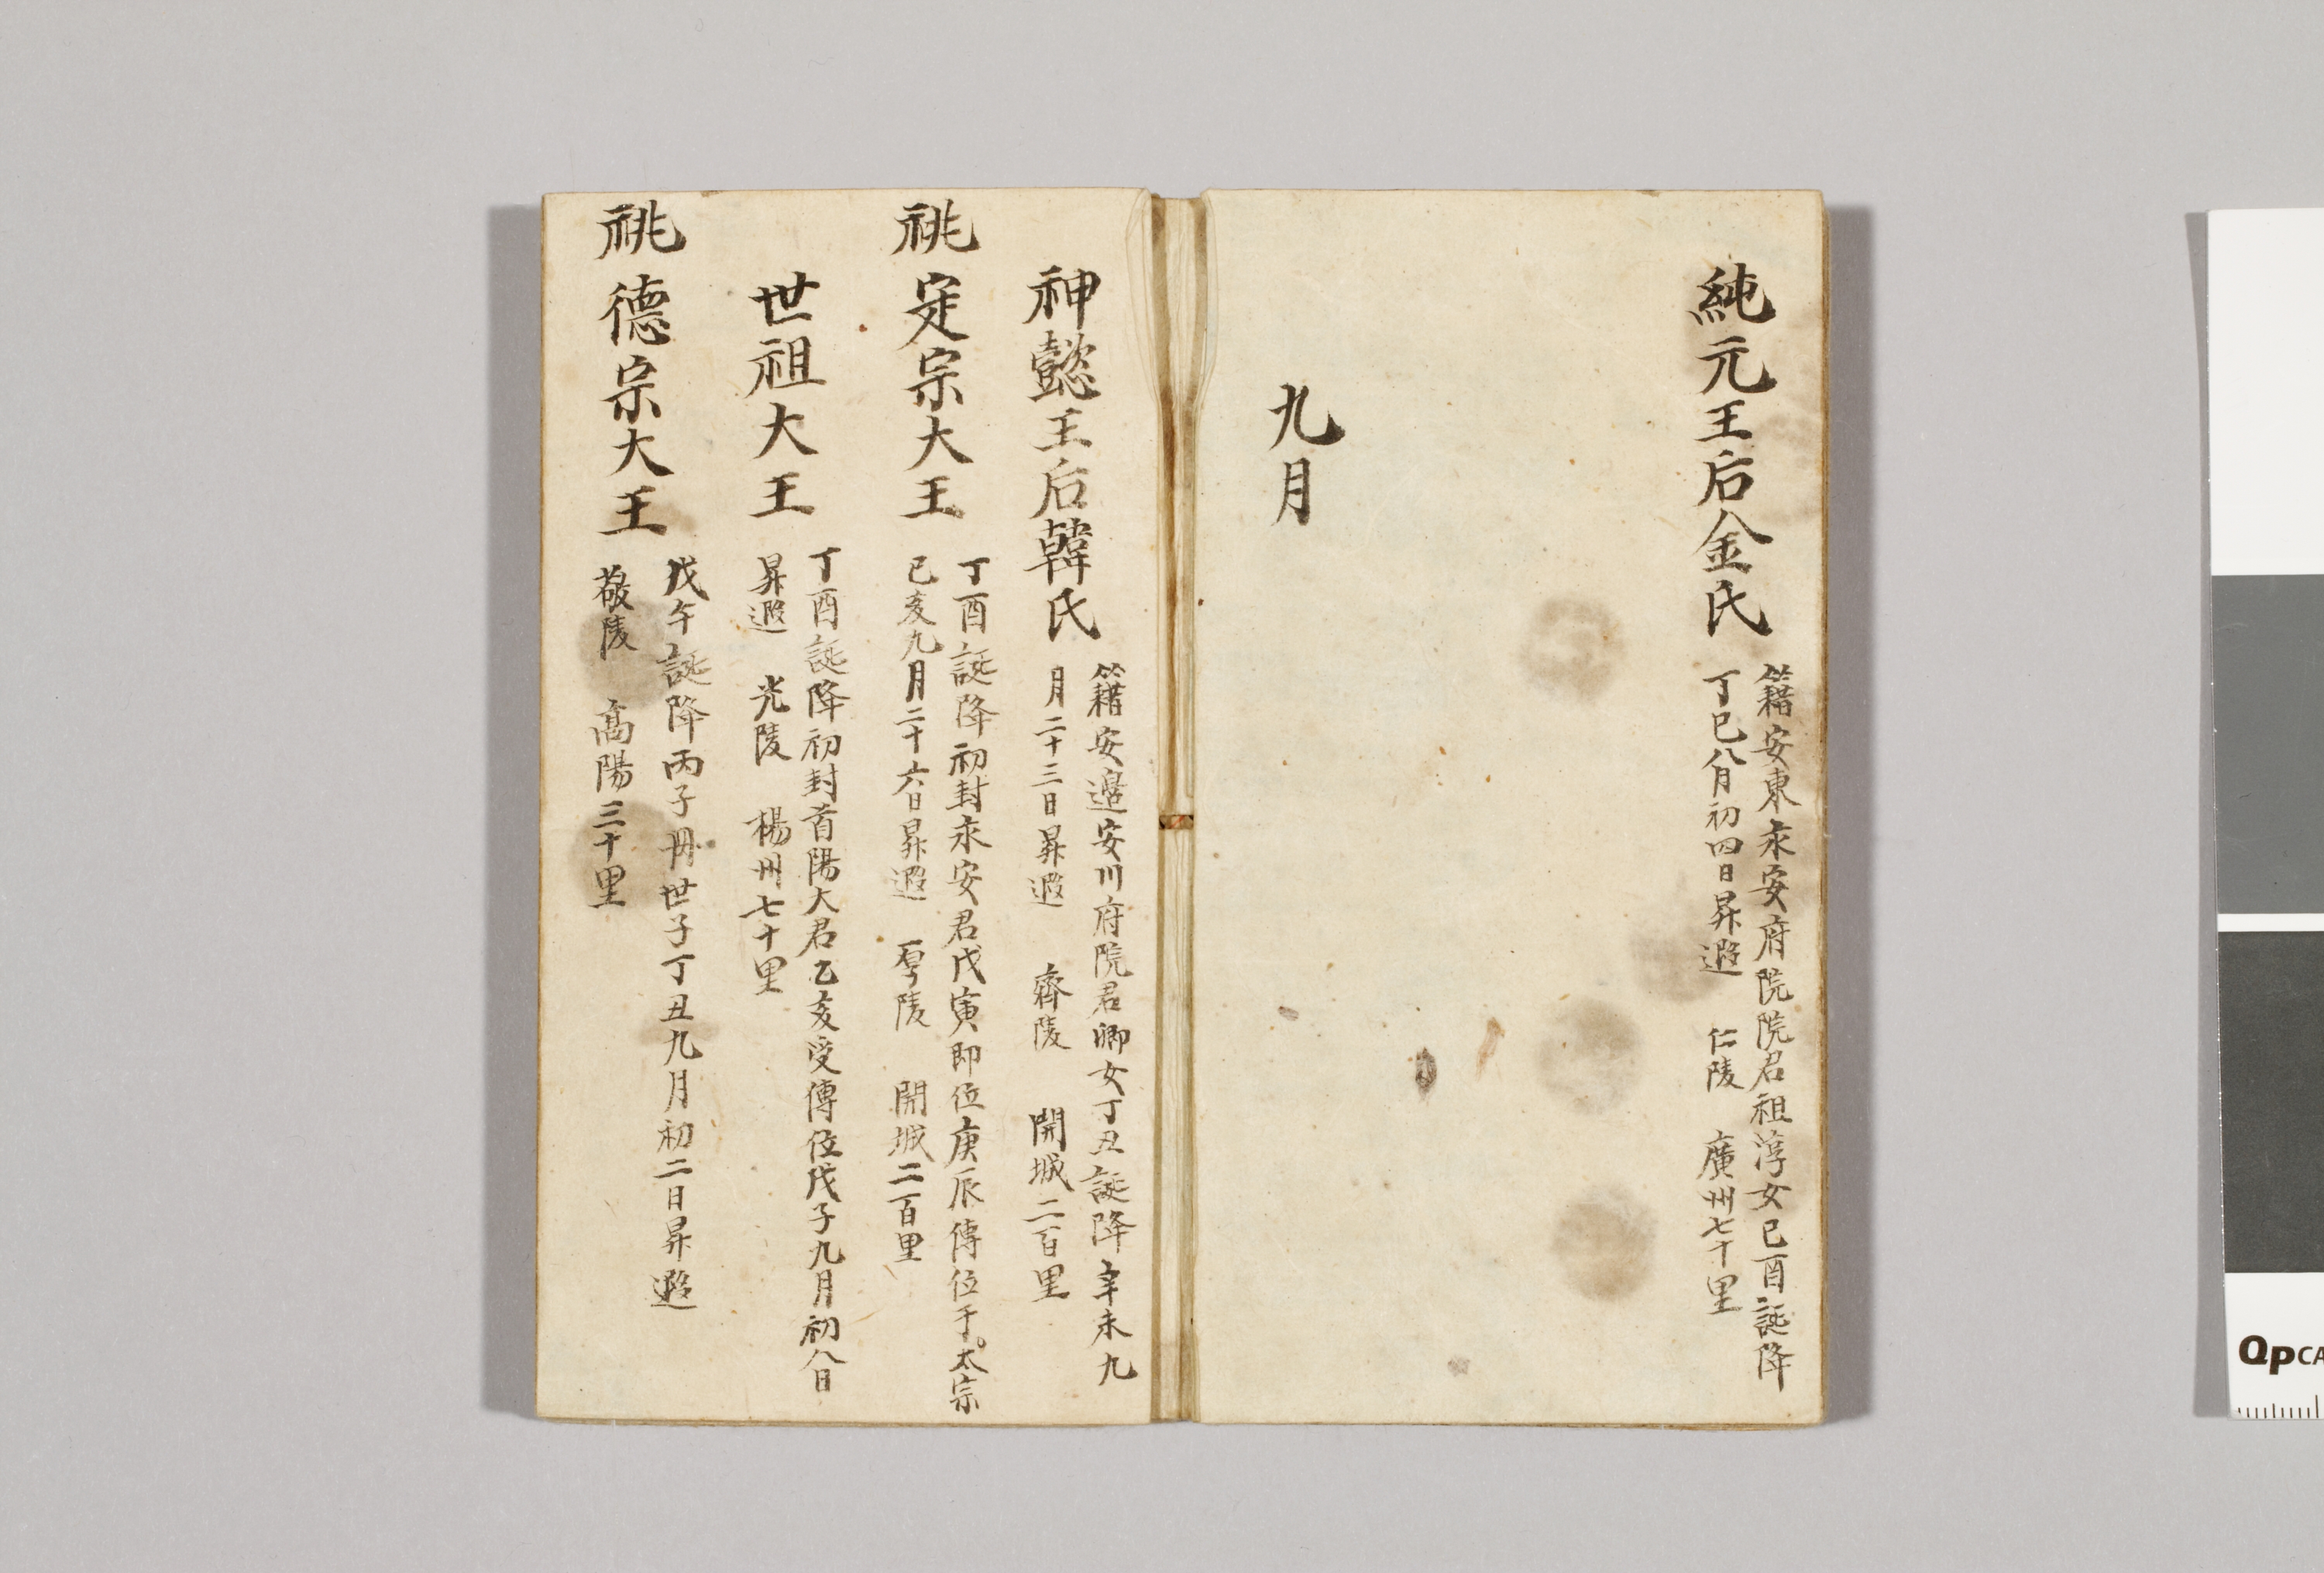 純元王后金氏
籍安東永安府院院君祖淳女己酉誕降
丁巳八月初四日昇遐 仁陵 廣州七十里
九月
神懿王后韓氏
籍安邊安川府院君卿女丁丑誕降辛未九
月二十三日昇遐 齊陵 開城二百里
祧 定宗大王
丁酉誕降初封永安君戊寅即位庚辰傳位于。太宗
己亥九月二十六日昇遐 厚陵 開城二百里
世祖大王
丁酉誕降初封首陽大君乙亥受傳位戊子九月初八日
昇遐 光陵 楊州七十里
祧 德宗大王
戊午誕降丙子冊世子丁丑九月初二日昇遐
敬陵 高陽三十里
QpCA